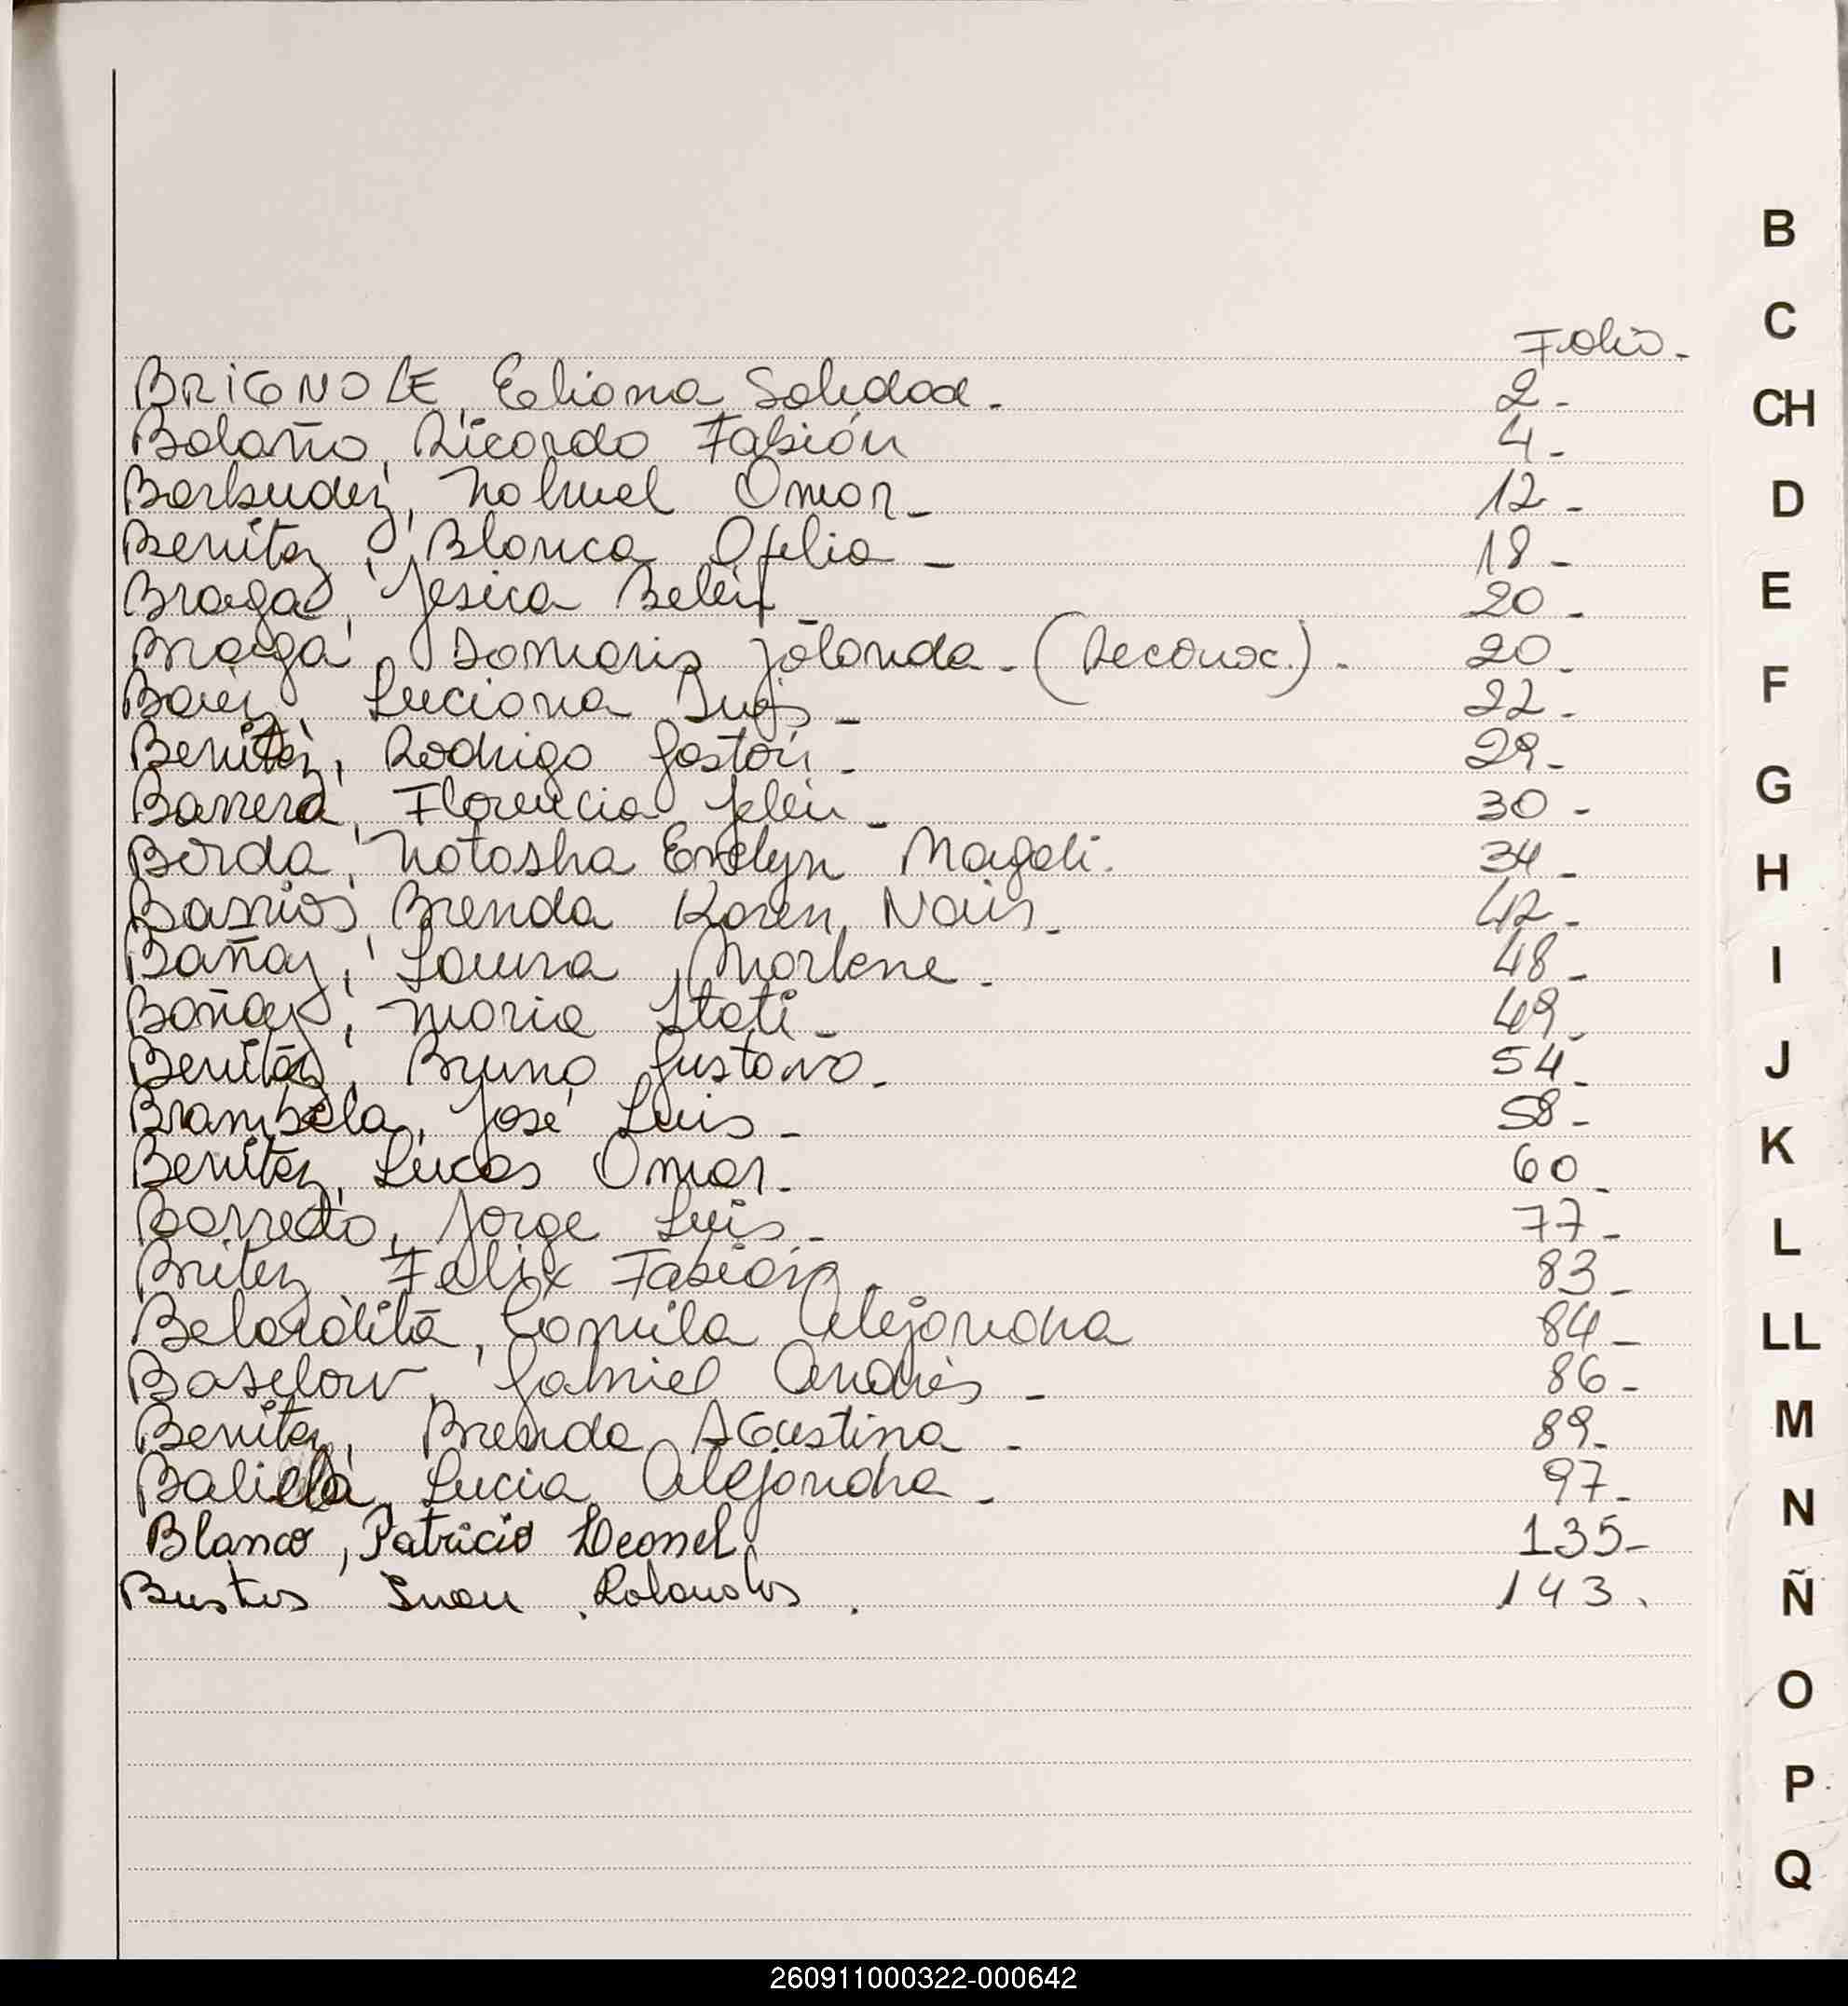 Folio.
BRIGNOLE, Eliana Soledad. 2-
Bolaño, Ricardo Fabián 4-
Barbudez, Nahuel Omar- 12-
Benitez, Blanca Ofelia - 18-
Braga, Jesica Belén 20-
Braga, Damaris Jolanda - (Reconoc.). 20-
Baez, Luciana Inés - 22-
Benitez, Rodrigo Gastón - 29-
Barrera, Florencia Jelén - 30-
Borda, Natasha Evelyn Magali. 34-
Barrios, Brenda Karen Nais - 42-
Bañay, Laura Marlene. 48-
Bañay, Maria Itati - 49-
Benitez, Bruno Gustavo. 54-
Brambela, José Luis - 58-
Benitez, Lucas Omar. 60-
Barreto, Jorge Luis - 77-
Britez Felix Fabián. 83-
Camila Alejandra 84-
Baselow, Gabriel Andrés - 86-
Benitez, Brenda AGustina - 89-
Lucia Alejandra - 97-
Blanco, Patricio Leonel. 135-
Bustos Juan Rolando. 143.
B
C
CH
D
E
F
G
H
I
J
K
L
LL
M
N
Ñ
O
P
Q
260911000322-000642